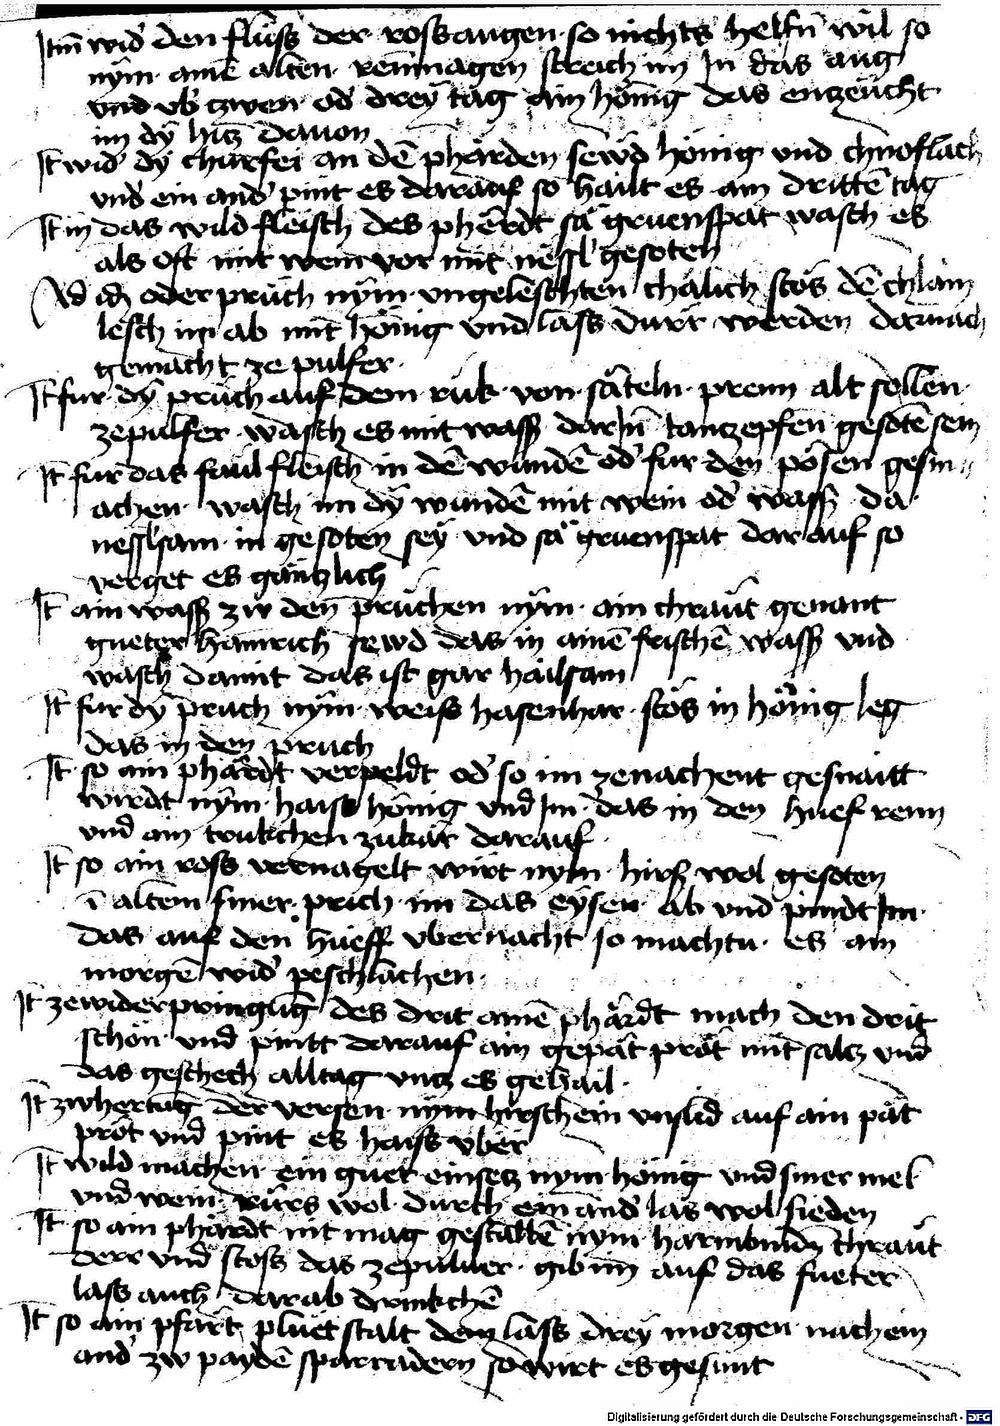 Itm̄ wid' den fluss der rossaugen so nichts helfn̄ wil so
nÿm ainē alten reinnagen streich im In das aug
vnd vb' zwen od' dreÿ tag ain hönig das enzeucht
im dÿ hitz dauon
It wid' dÿ churfei an dē phärden sewd hönig vnd chnoflach
vnd' ein and' pint es darauf so hailt es am drittē tag
It in das wild fleisch des phërdt sä gruenspat wasch es
als oft mit wein vor mit nessl gesoten
Ad idz oder prüch nÿm vngeleschten chalich stös dē chlain
lesch im ab mit hönig vnd lass dürr werden darnach
gemacht ze pulfer
It fur dÿ prüch auf dem ruk von säteln prenn alt sollen
zepulfer wasch es mit wass' darIn̄ tanzepfen gesotē sein
It fur das faul fleisch in dē wundē od' fur den pösen gesm
achen wasch im dÿ wundē mit wein od' wass' da
nesslsam in gesoten seÿ vnd sä gruenspat darauf so
verget es gäntzlich
It ain wass' zw den prüchen nÿm ain chraut genant
gueter hainrich sewd das in ainē frischē wass' vnd
wasch damit das ist gar hailsam
It fur dÿ prüch nÿm weiss hasenhar stös in hönig leg
das in den pruch
It so ain phärdt verpeldt od' so im zenachent gesnaitt
wirdt nÿm haiss hönig vnd Im das in den huef renn
vnd ain trukchen zukär darauf
It so ain ross vernagelt wirt nÿm hirss wol gesoten
ī altem smer prich im das eÿsen ab vnd pindt Im
das auf den hueff vbernacht so machtu es am
morgē wid' peschlachen
It zewiderpringūg des drit ainē phärdt mach den drit
schön vnd pintt darauf ain gepät pröt mit saltz vnd
das geschech alltag vntz es gehail
It zwhertūg der versen nÿm hirschein vnslid auf ain pät
pröt vnd pint es haiss vber
It wild machen ein guet einsetz nÿm hönig vnd smer mel
vnd wein rürs wol durch ein and' las wol sieden
It so ain phärdt nit mag gestallē nÿm harmbindn chraut
derr vnd stoss das zepuluer gib im auf das fueter
lass auch darab drinkchē
It so ain pfärt pluet stalt dem lass dreÿ morgen nach ein
and' zw paydē sparradern so wirt es gesunt
Digitalisierung gefördert durch die Deutsche Forschungsgemeinschaft - DFG